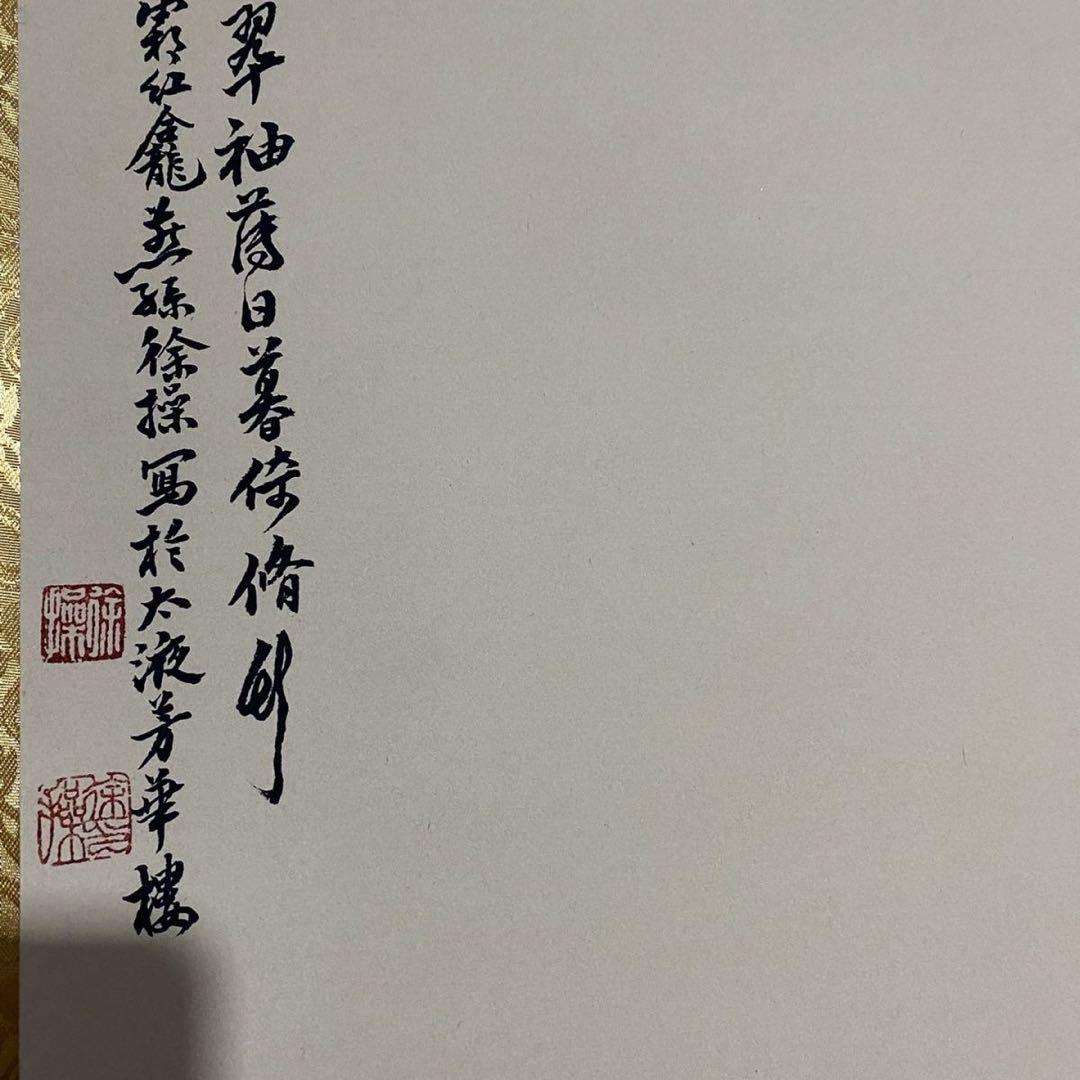 翠袖薄日暮倚脩竹
霜紅龕燕孫徐操寫於太液芳華樓
徐操
徐操